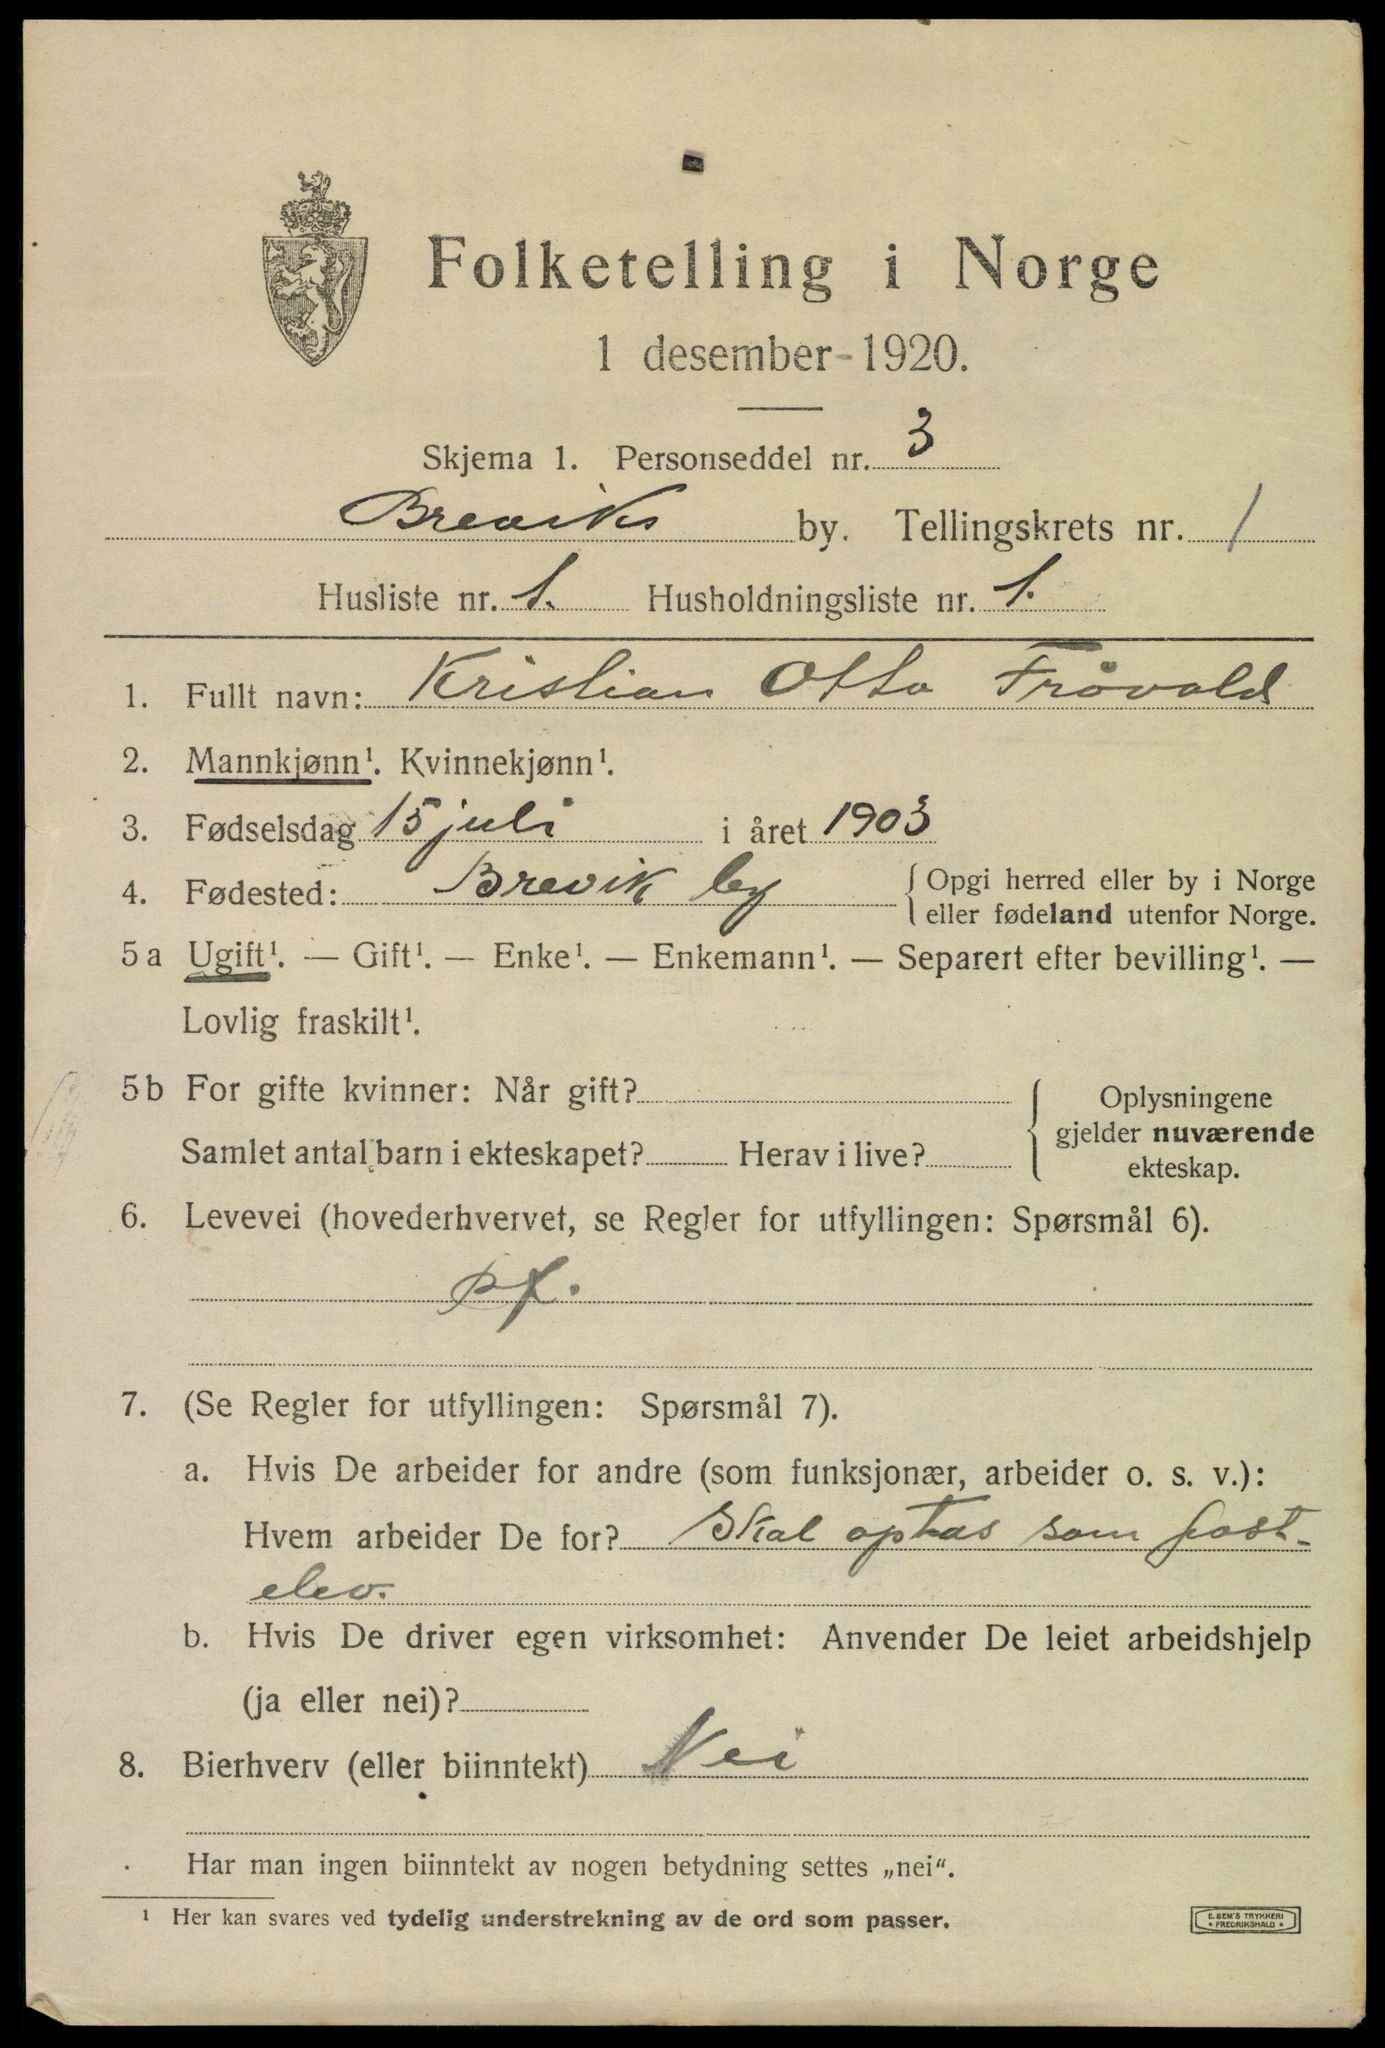 Folketelling i Norge
1 desember 1920.
Skjema 1. Personseddel nr. 3
Breviks by. Tellingskrets nr. 1
Husliste nr. 1. Husholdningsliste nr. 1.
1. Fullt navn: Kristian Otto Frövold
2. Mannkjønn¹. Kvinnekjønn¹.
3. Fødselsdag 15 juli i året 1903
4. Fødested: Brevik by { Opgi herred eller by i Norge
eller fødeland utenfor Norge.
5a Ugift¹. — Gift¹. — Enke¹. — Enkemann¹. — Separert efter bevilling¹. —
Lovlig fraskilt¹.
5b For gifte kvinner: Når gift?
Samlet antal barn i ekteskapet? Herav i live?
{ Oplysningene
gjelder nuværende
ekteskap.
6. Levevei (hovederhvervet, se Regler for utfyllingen: Spørsmål 6).
pf.
7. (Se Regler for utfyllingen: Spørsmål 7).
a. Hvis De arbeider for andre (som funksjonær, arbeider o. s. v.):
Hvem arbeider De for? Skal optas som post-
elev.
b. Hvis De driver egen virksomhet: Anvender De leiet arbeidshjelp
(ja eller nei)?
8. Bierhverv (eller biinntekt) Nei
Har man ingen biinntekt av nogen betydning settes „nei“.
¹ Her kan svares ved tydelig understrekning av de ord som passer.
E. SEM'S TRYKKERI
FREDRIKSHALD